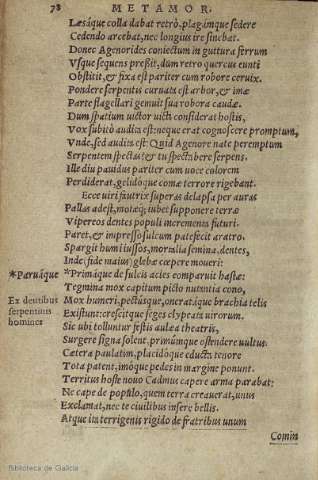 78 METAMOR.
Læsáque colla dabat retrò, plagámque sedere
Cedendo arcebat, nec longius ire sinebat.
Donec Agenorides coniectum in guttura ferrum
Vsque sequens pressit, dum retro quercus eunti
Obstitit, & fixa est pariter cum robore ceruix.
Pondere serpentis curuata est arbor, & imæ
Parte flagellari gemuit sua robora caudæ.
Dum spatium uictor uicti considerat hostis,
Vox subitò audita est: neque erat cognoscere promptum,
Vnde, sed audita est: Quid Agenore nate peremptum
Serpentem spectas? & tu spectabere serpens.
Ille diu pauidus pariter cum uoce colorem
Perdiderat, gelidóque comæ terrore rigebant.
Ecce uiri fautrix superas delapsa per auras
Pallas adest, motæq; iubet supponere terræ
Vipereos dentes populi incrementa futuri.
Paret, & impresso sulcum patefecit aratro,
Spargit humi iussos, mortalia semina, dentes,
Inde (fide maius) glebæ cœpere moueri:
*Paruáque *Primáque de sulcis acies comparuit hastæ:
Tegmina mox capitum picto nutantia cono,
Ex dentibus Mox humeri, pectúsque, onerátque brachia telis
serpentinis Existunt: crescitque seges clypeata uirorum.
homines Sic ubi tolluntur festis aulæa theatris,
Surgere signa solent, primúmque ostendere uultus.
Cætera paulatim, placidóque educta tenore
Tota patent, imóque pedes in margine ponunt.
Territus hoste nouo Cadmus capere arma parabat:
Ne cape de populo, quem terra creauerat, unus
Exclamat, nec te ciuilibus insere bellis.
Atque ita terrigenis rigido de fratribus unum
Comin
Biblioteca de Galicia